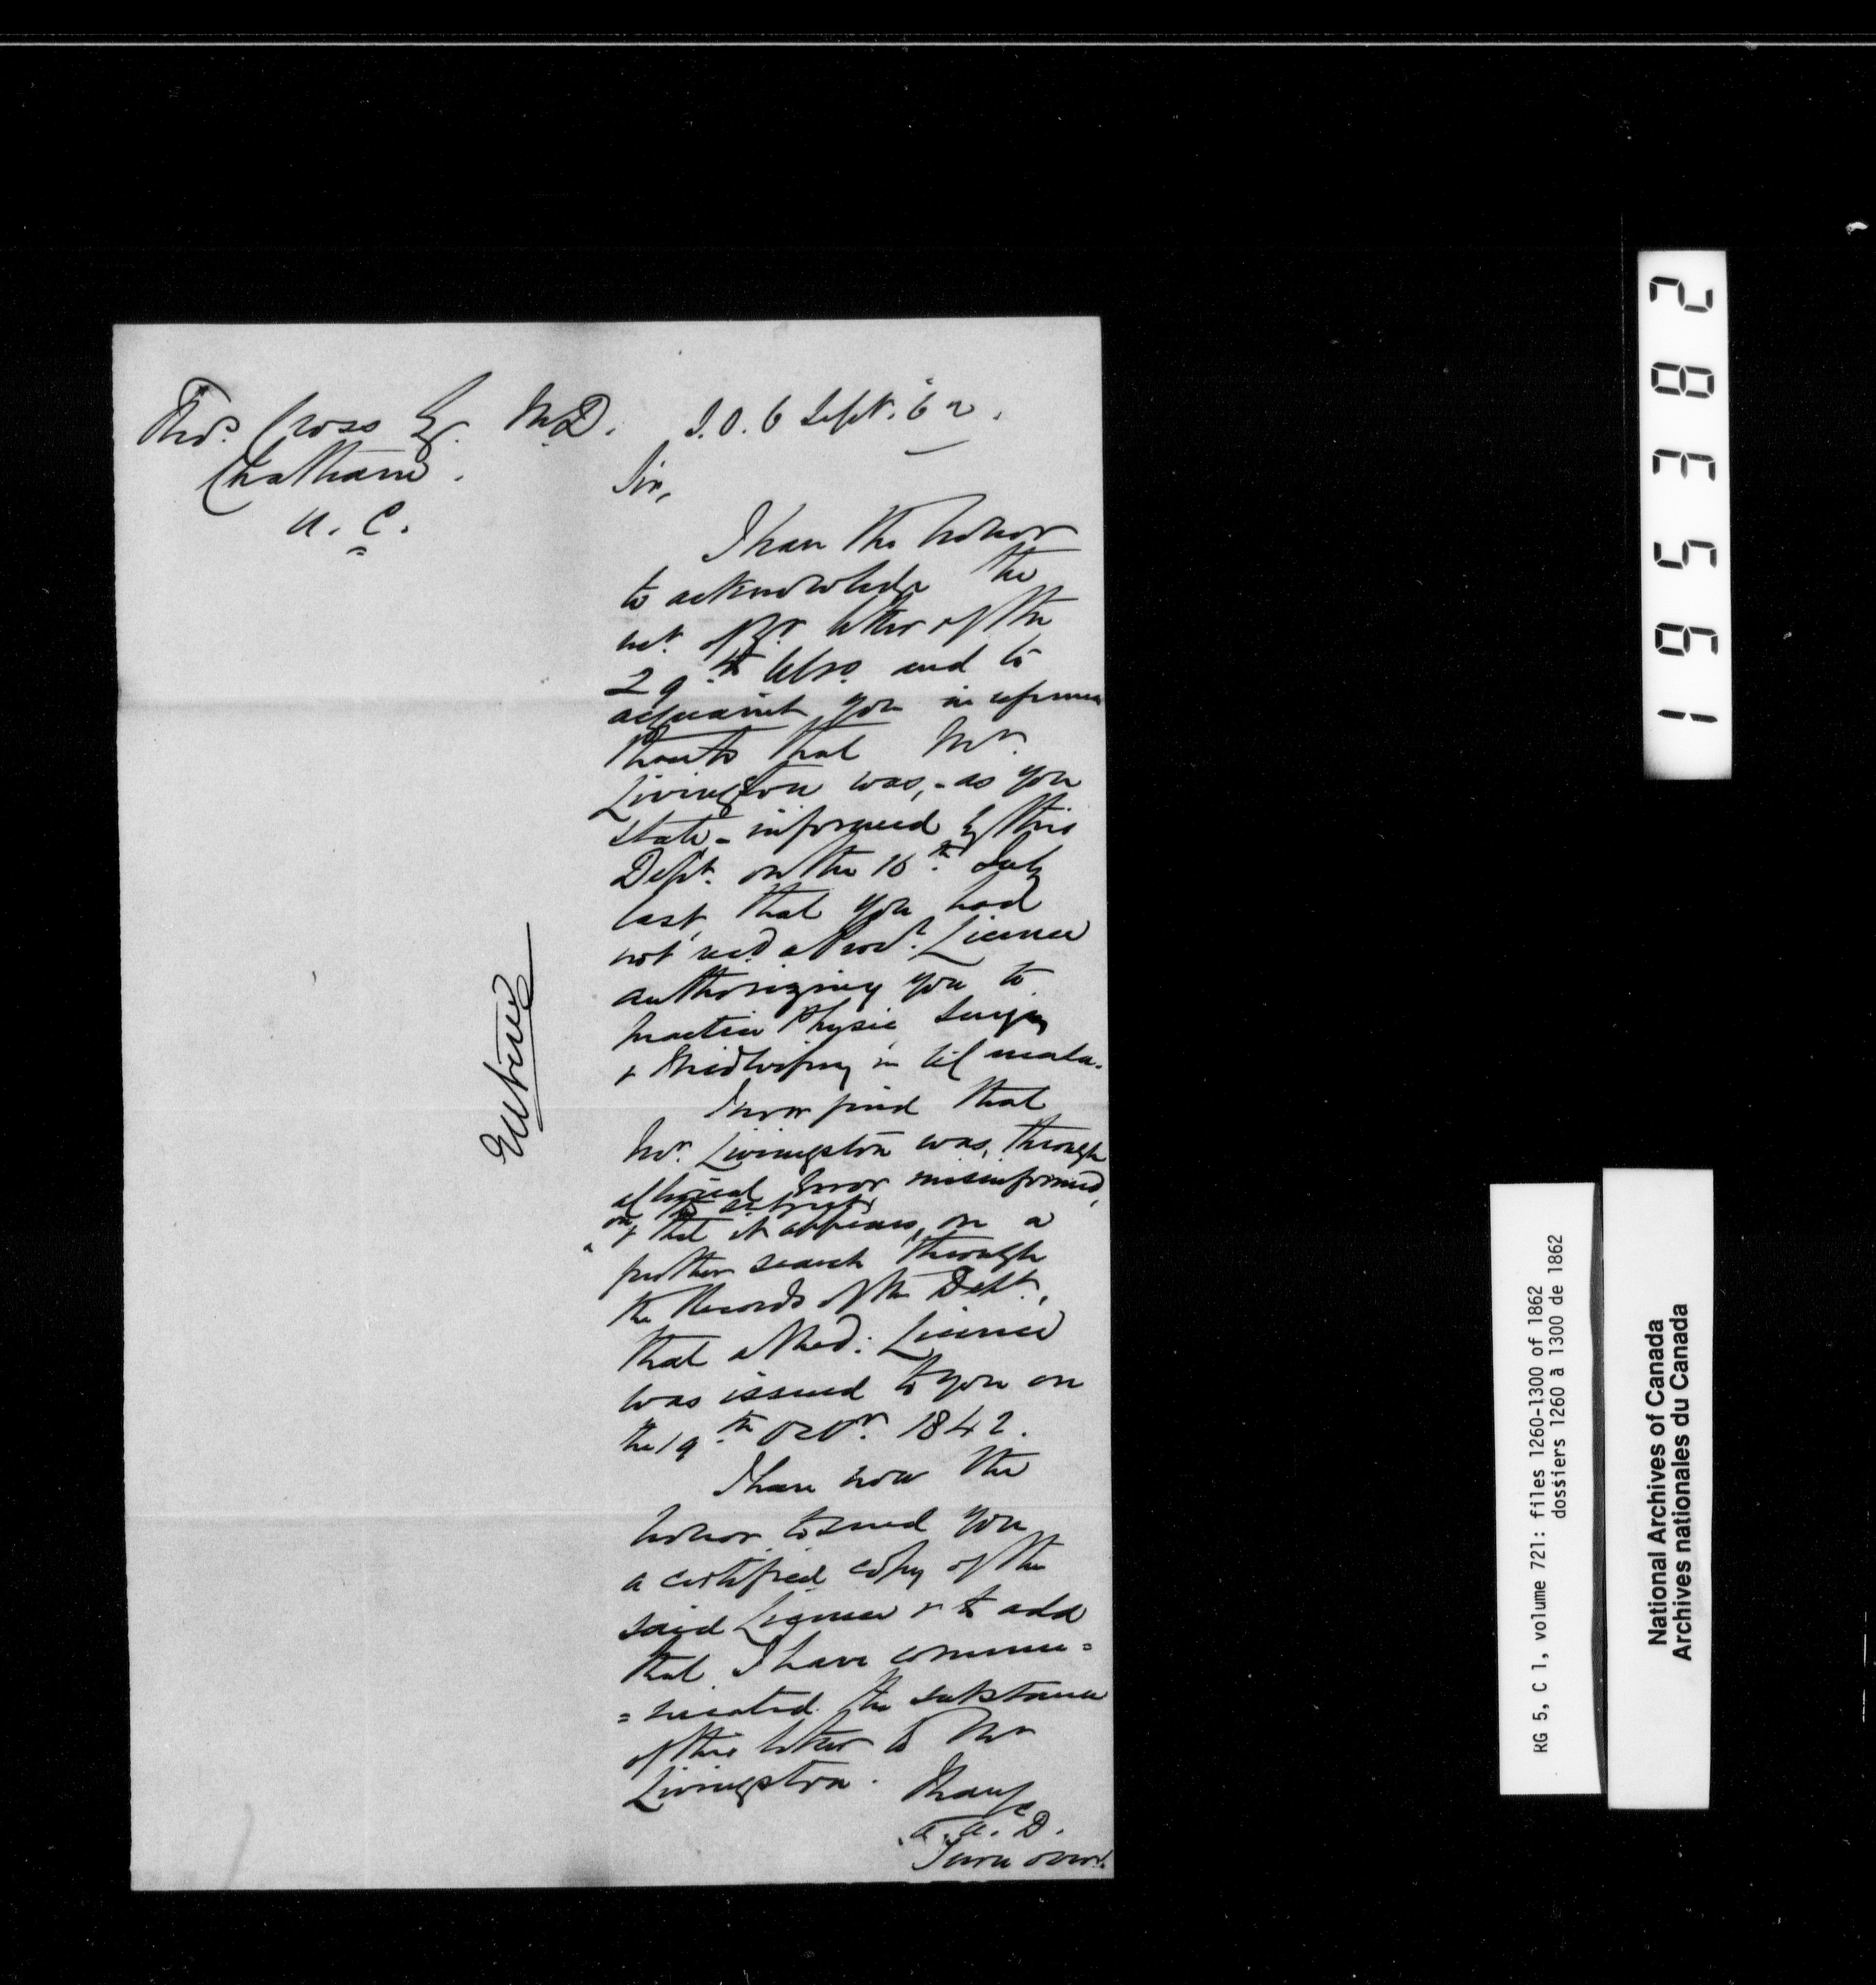 Thos. Cross Esqr. M.D.
Chatham.
U. C.
S.O. 6 Septr. 62.
Sir,
I have the honor
to acknowledge the
rect. of yr. letter of the
29th Ulto. and to
acquaint you in reference
thereto that Mr.
Livingston was, - as you
state - informed by this
Dept. on the 16th July
last, that you had
not recd. a Licence
authorizing you to
practice Physic, Surgery
& Midwifery in
I now find that
Mr. Livingston was, through
error misinformed,
& that it appears, on a
further search through
the Records of the Dept.,
that a Med: Licence
was issued to you on
the 19th Octr. 1842.
I have now the
honor to send you
a certified copy of the
said Licence & to add
that I have commu=
=nicated the substance
of this letter to Mr
Livingston.
I have &c
E. A. D.
Turn over!
Entered
195382
RG 5, C 1, volume 721: files 1260-1300 of 1862
dossiers 1260 à 1300 de 1862
National Archives of Canada
Archives nationales du Canada